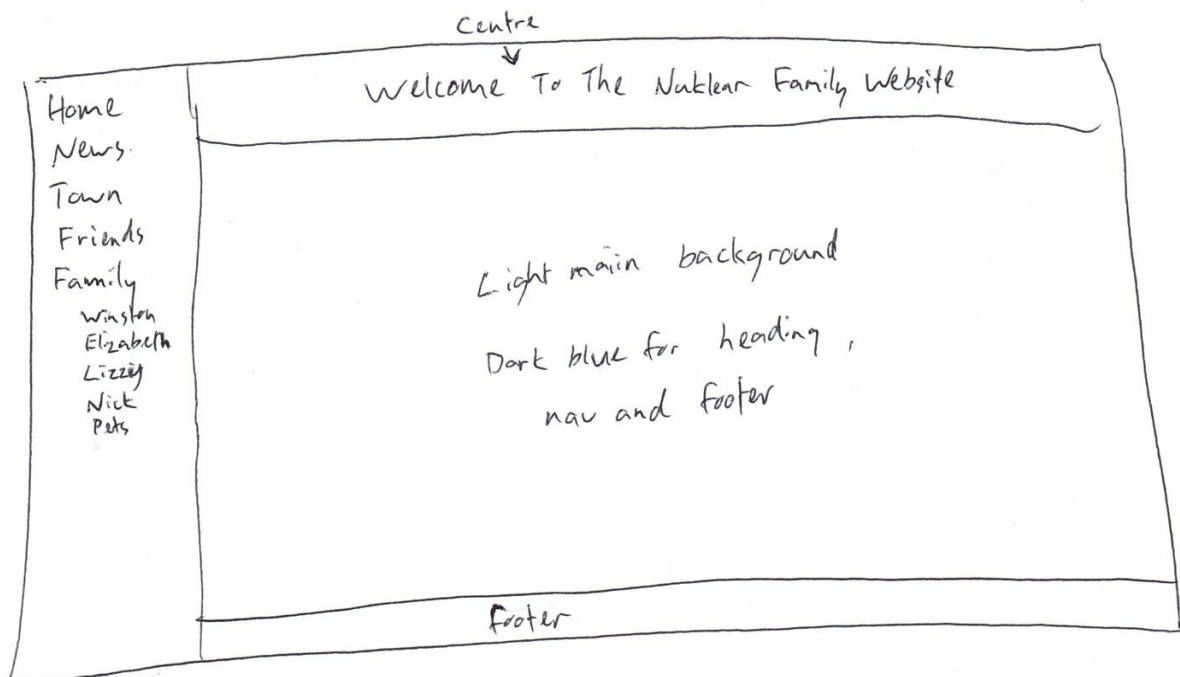 Centre
Welcome To The Nuklear Family Website
Home
News.
Town
Friends
Family
Winston
Elizabeth
Lizzy
Nick
Pets
Light main background
Dark blue for heading,
nav and footer
footer